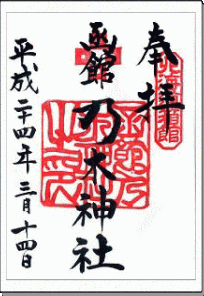 奉拝
函館乃木神社
平成二十四年三月十四日